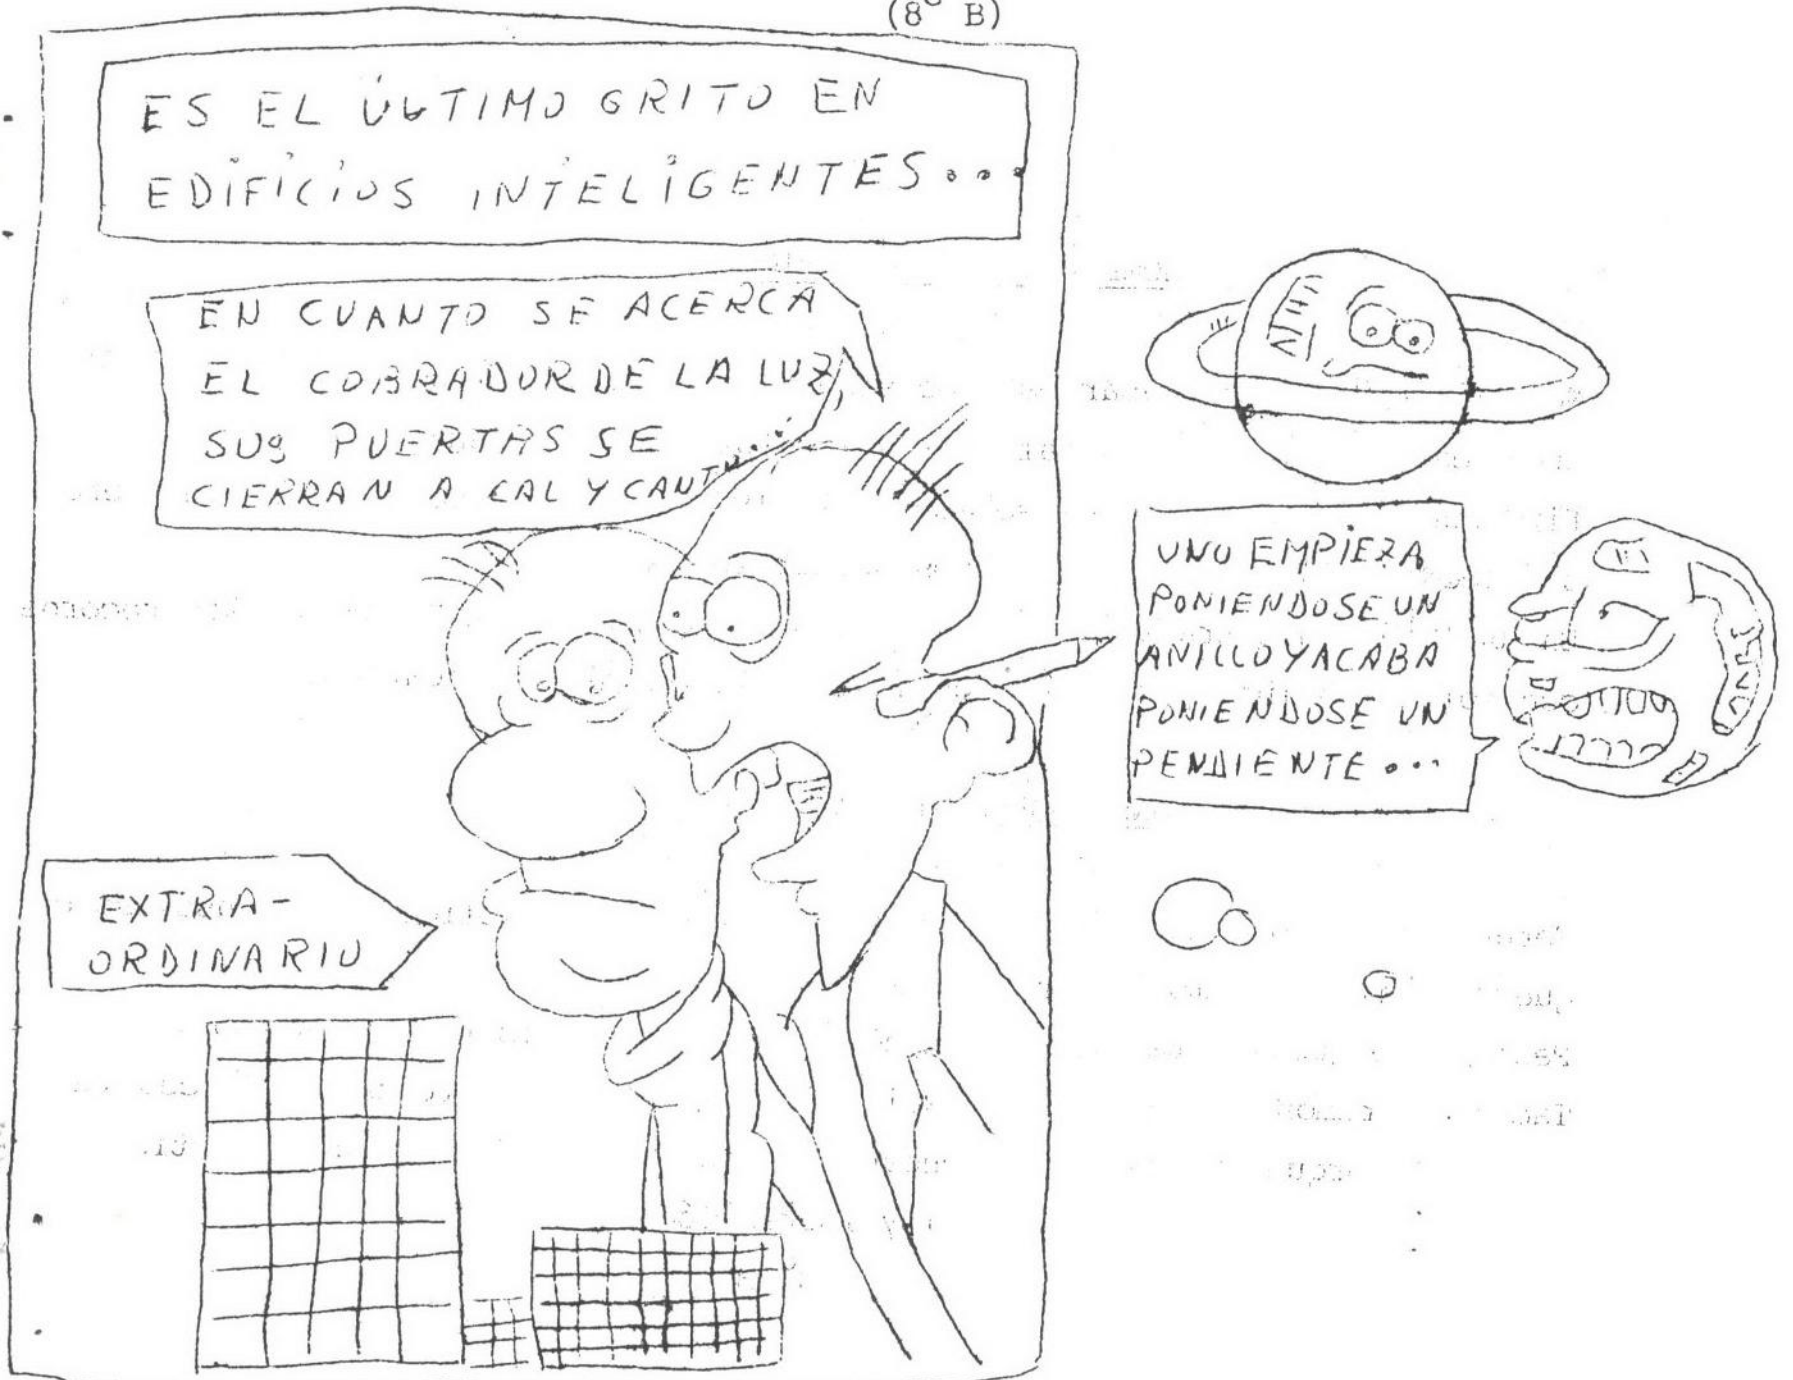 (8º B)
ES EL ÚLTIMO GRITO EN
EDIFICIOS INTELIGENTES...
EN CUANTO SE ACERCA
EL COBRADOR DE LA LUZ,
SUS PUERTAS SE
CIERRAN A CAL Y CANTO...
EXTRA-
ORDINARIO
UNO EMPIEZA
PONIENDOSE UN
ANILLO Y ACABA
PONIENDOSE UN
PENDIENTE...